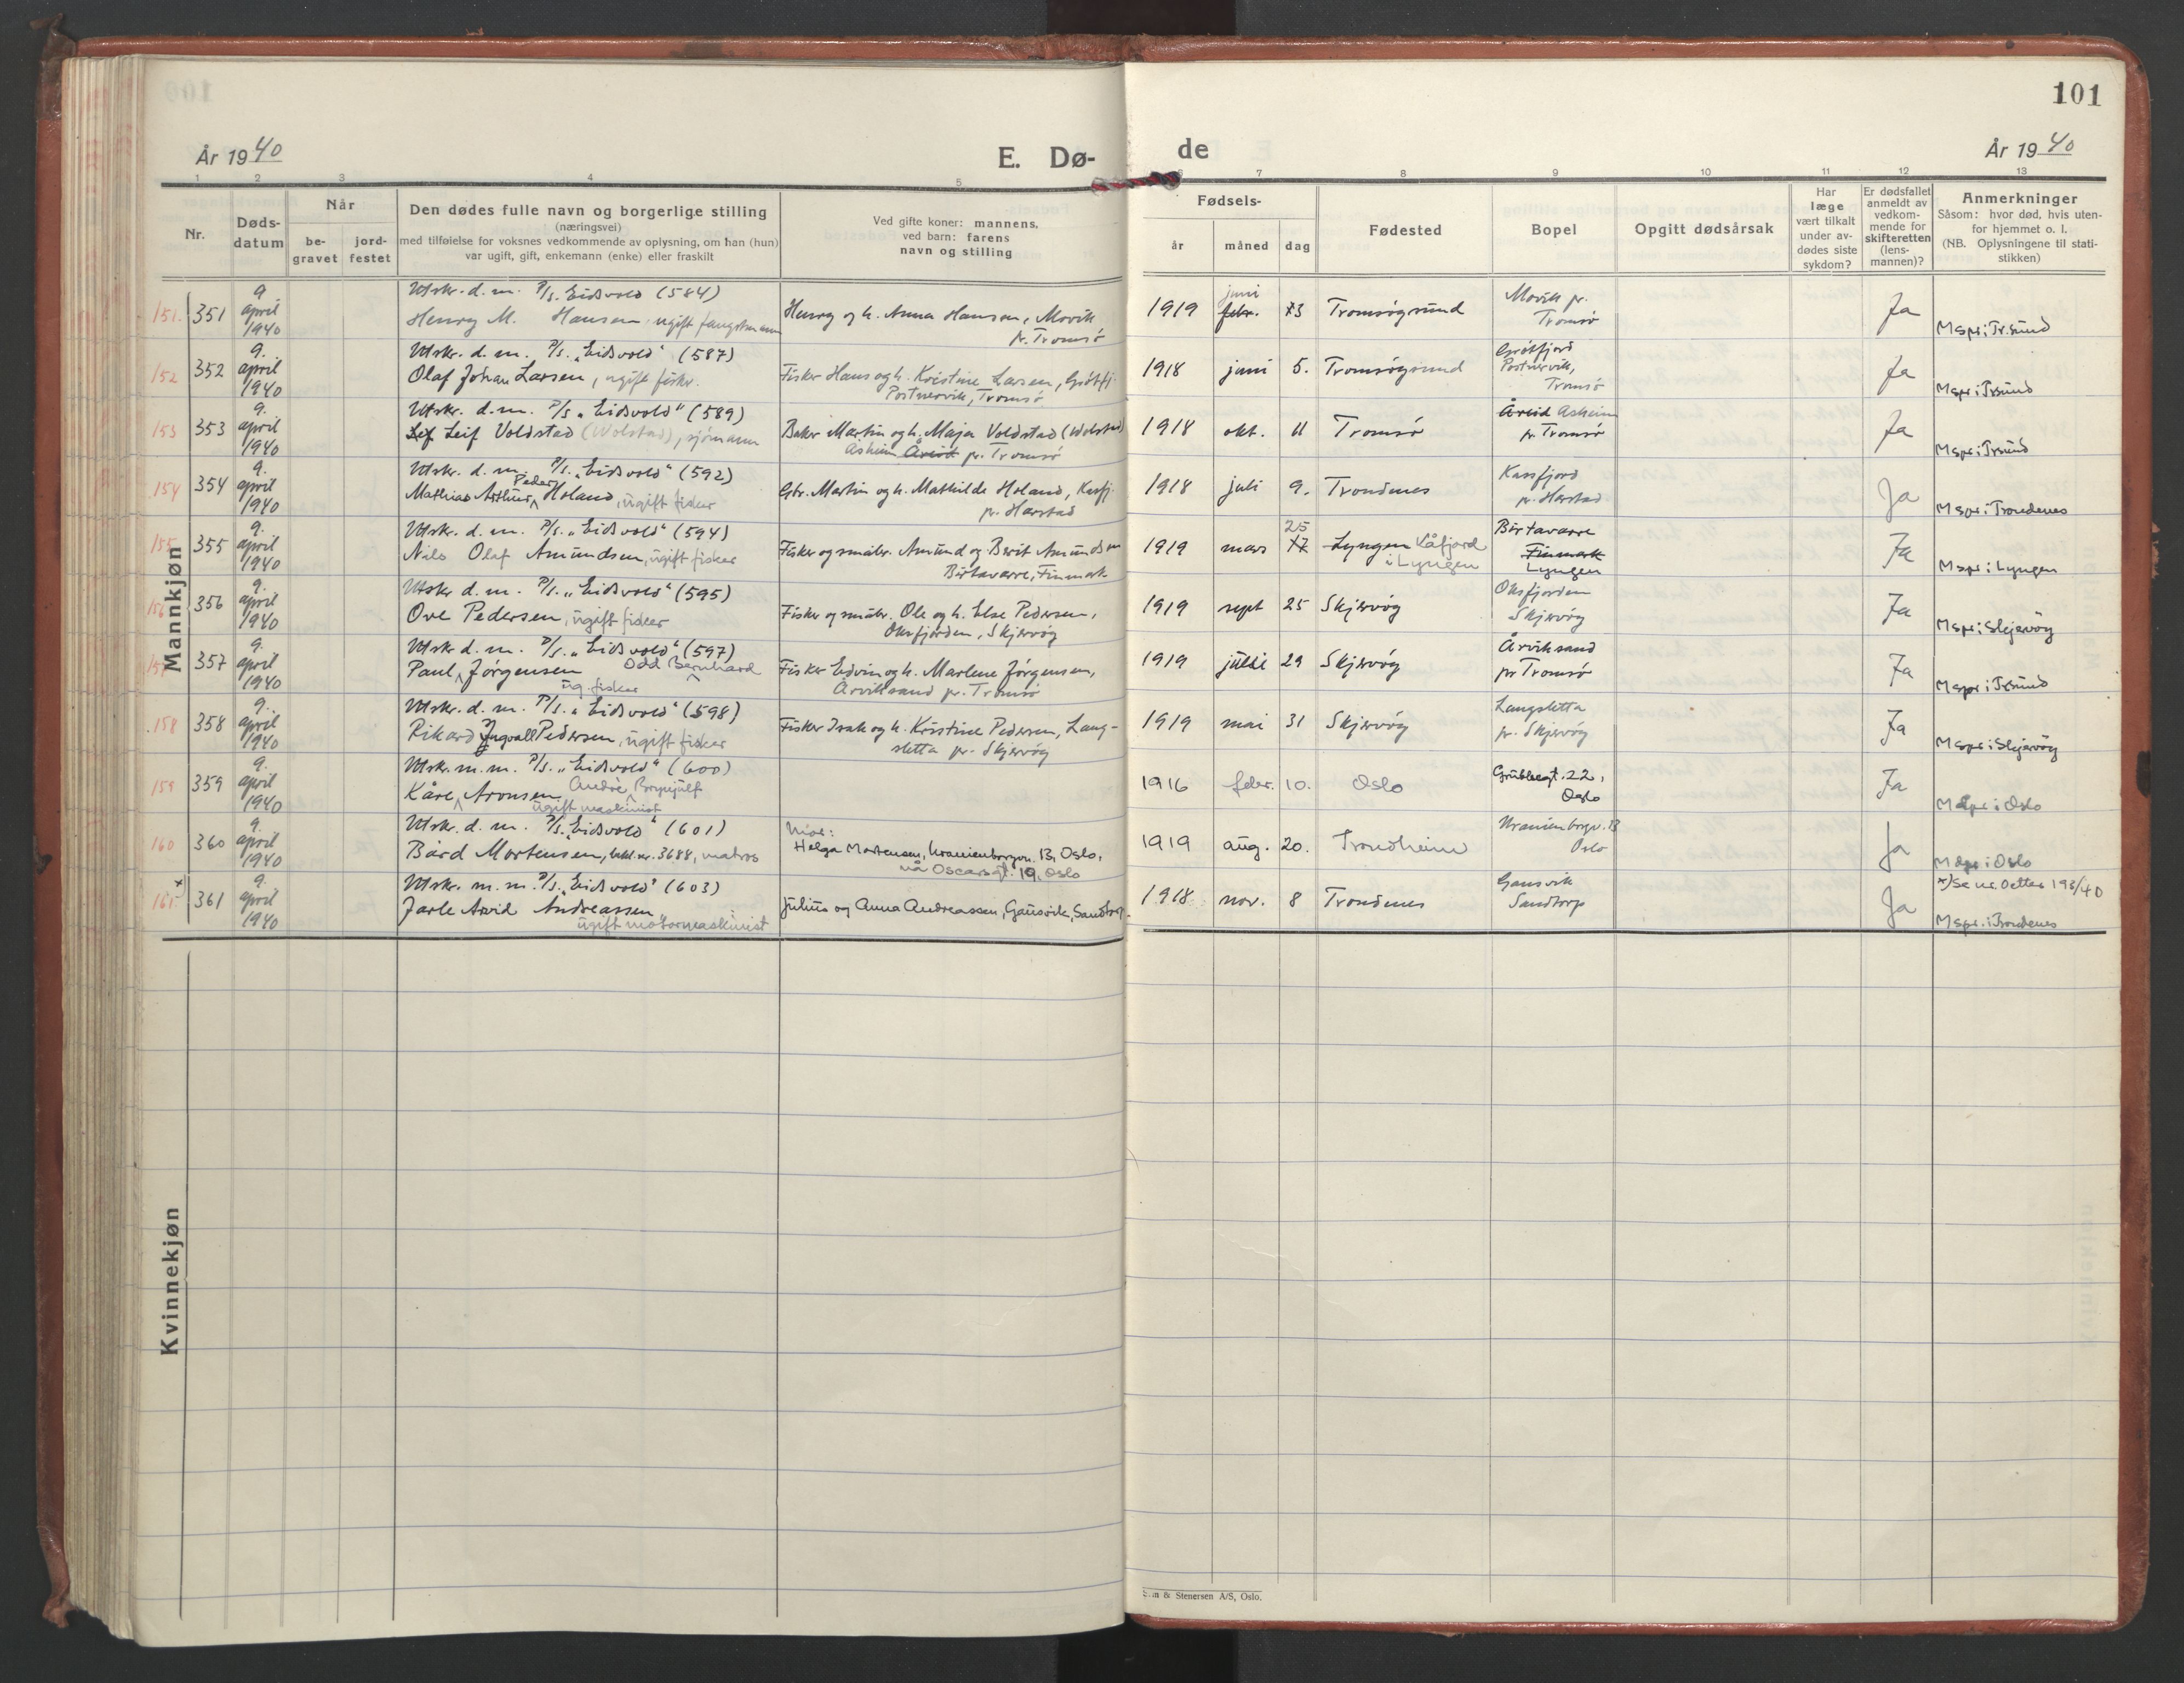 101
År 1940
E. Dø-
de
År 1940
1 2 3 4 5 6 7 8 9 10 11 12 13
Nr.
Døds-
datum
Når
be-
gravet
jord-
festet
Den dødes fulle navn og borgerlige stilling
(næringsvei)
med tilføielse for voksnes vedkommende av oplysning, om han (hun)
var ugift, gift, enkemann (enke) eller fraskilt
Ved gifte koner: mannens,
ved barn: farens
navn og stilling
Fødsels-
år
måned
dag
Fødested
Bopel
Opgitt dødsårsak
Har
læge
vært tilkalt
under av-
dødes siste
sykdom?
Er dødsfallet
anmeldt av
vedkom-
mende for
skifteretten
(lens-
mannen)?
Anmerkninger
Såsom: hvor død, hvis uten-
for hjemmet o. l.
(NB. Oplysningene til stati-
stikken)
Mannkjøn
151. 351 9 april 1940
Utskr. d. m. P/s. Eidsvold (584)
Henry M. Hansen, ugift fangstmann
Henry og h. Anna Hansen, Movik
pr. Tromsø
1919 juni febr. 3 Tromsøysund
Movik pr.
Tromsø
Ja
M spr. i Tr.sund
152 352 9. april 1940
Utskr. d. m. P/s. "Eidsvold" (587)
Olaf Johan Larsen, ugift fisker.
Fisker Hans og h. Kristine Larsen, Grøtfj.
Postnervik, Tromsø
1918 juni 5. Tromsøysund
Grøtfjord
Postnervik,
Tromsø
Ja
M spr. i Trsund
153 353 9. april 1940
Utskr. d. m. P/s "Eidsvold" (589)
Leif Leif Voldstad (Wolstad), sjømann
Baker Martin og h. Maja Voldstad (Wolstad)
Åsheim Åreid pr. Tromsø
1918 okt. 11 Tromsø
Åreid Åsheim
pr. Tromsø
Ja
M spr. i Trsund
154 354 9. april 1940
Utskr. d. m. P/s. "Eidsvold" (592)
Mathias Arthur Peder Holand, ugift fisker
Gbr. Martin og h. Mathilde Holand, Kasfj.
pr. Harstad
1918 juli 9. Trondenes
Kassfjord
pr. Harstad
Ja
M spr. i Trondenes
155 355 9. april 1940
Utskr. d. m. P/s. "Eidsvold" (594)
Nils Olaf Amundsen, ugift fisker
Fisker og småbr. Amund og Berit Amundsen
Birtavarre, Finmark
1919 mars 25 17 Lyngen Kåfjord
i Lyngen
Birtavarre
Finmark
Lyngen
Ja
M spr. i Lyngen
156 356 9. april 1940
Utskr d. m. P/s. "Eidsvold" (595)
Ove Pedersen, ugift fisker
Fisker og småbr. Ole og h. Else Pedersen,
Oksfjorden, Skjervøy
1919 sept 25 Skjervøy
Oksfjorden
Skjervøy
Ja
M spr. i Skjervøy
157 357 9. april 1940
Utskr d. m. P/s. "Eidsvold" (597)
Paul Jørgensen Odd Bernhard
ug. fisker
Fisker Edvin og h. Marlene Jørgensen,
Arviksand pr. Tromsø
1919 juli 29 Skjervøy
Årviksand
pr Tromsø
Ja
M spr. i Trsund
158 358 9. april 1940
Utskr. d. m. P/s. "Eidsvold" (598)
Rikard Ingvall Pedersen, ugift fisker
Fisker Isak og h. Kristine Pedersen, Lang-
sletta pr. Skjervøy
1919 mai 31 Skjervøy
Langsletta
pr. Skjervøy
Ja
M spr. i Skjervøy
159 359 9. april 1940
Utskr. m. m. P/s. "Eidsvold" (600)
Kåre Aronsen André Brynjulf
ugift maskinist
1916 febr. 10. Oslo
Grubbegt. 22,
Oslo
Ja
M spr. i Oslo
160 360 9. april 1940
Utskr. d. m. P/s. "Eidsvold" (601)
Bård Mortensen, inkl. nr. 3688, matros
Mor:
Helga Mortensen, Uranienborgvn. 13, Oslo,
nå Oscarsgt. 19, Oslo
1919 aug. 20. Trondheim
Uranienborgv. 13
Oslo
Ja
M spr. i Oslo
161 x 361 9. april 1940
Utskr. m. m. P/s. "Eidsvold" (603)
Jarle Arvid Andreassen
ugift motormaskinist
Julius og Anna Andreassen, Gausvik, Sandtorp.
1918 nov. 8 Trondenes
Gausvik
Sandtorp
Ja
x) Se nr. Dette 193/40
M spr. i Trondenes
Kvinnekjøn
& Stenersen A/S, Oslo.